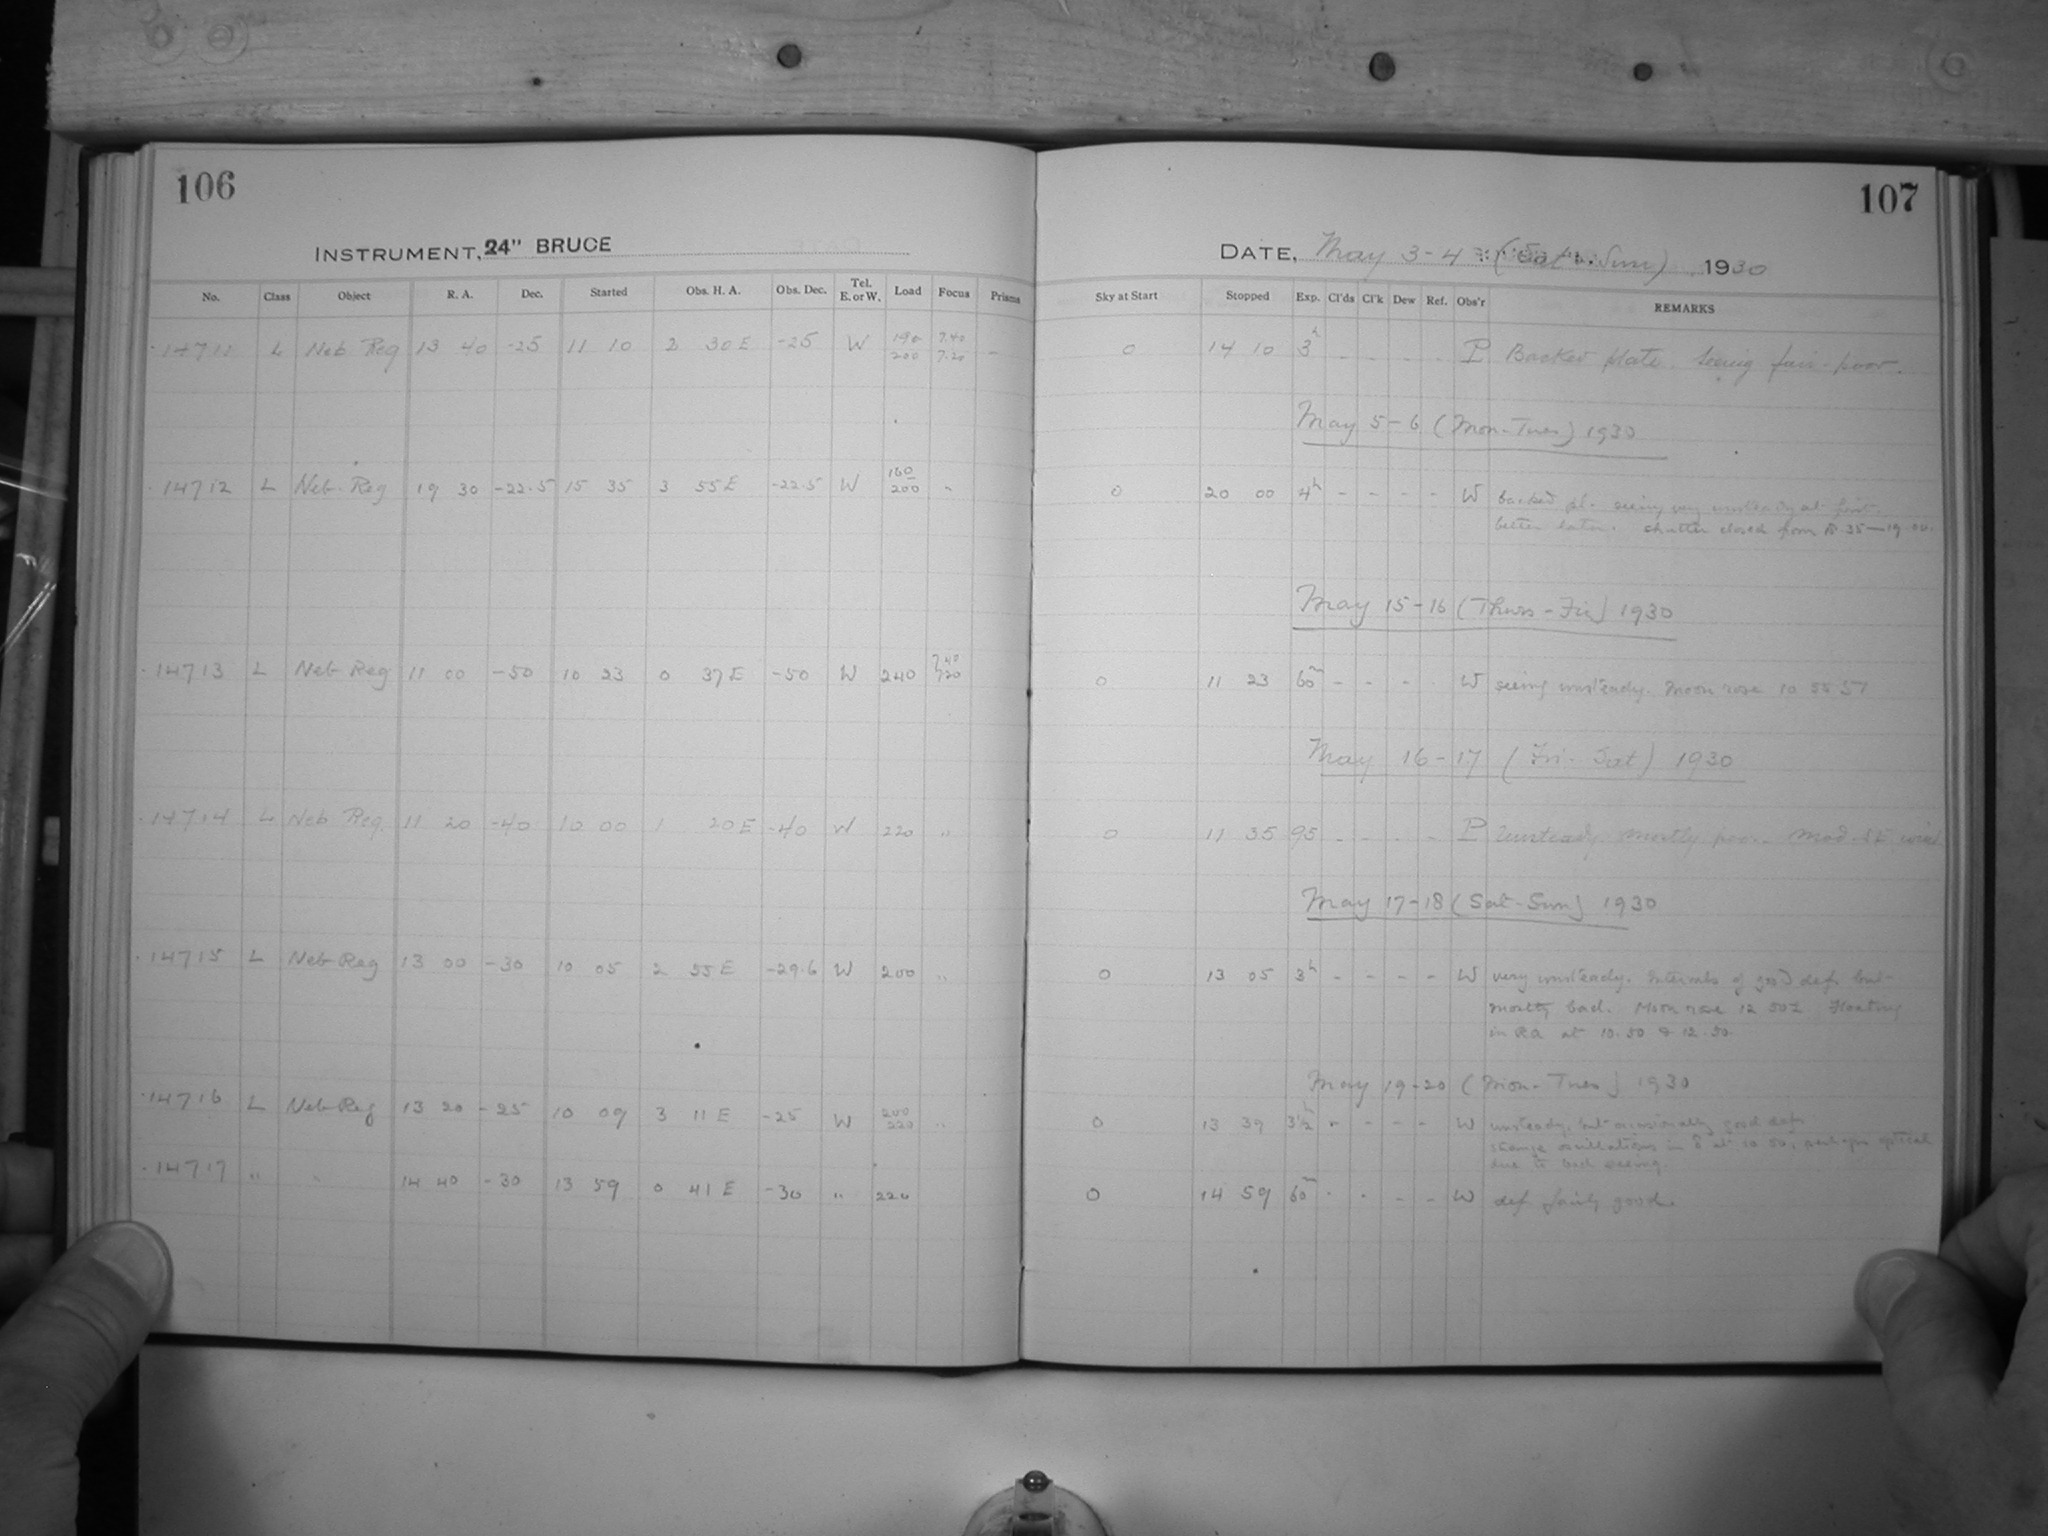 106
107
INSTRUMENT, 24" BRUCE
DATE, May 3-4 (Sat-Sun) 1930
No. Class Object R. A. Dec. Started Obs. H. A. Obs. Dec. Tel. E. or W. Load Focus Prisms Sky at Start Stopped Exp. Cl'ds Cl'k Dew Ref. Obs'r REMARKS
14711 L Neb Reg 13 40 -25 11 10 2 30 E -25 W 190 200 7.40 7.20 - 0 14 10 3h - - - - P Backed plate. Seeing fair-poor.
May 5-6 (Mon-Tues) 1930
14712 L Neb. Reg 19 30 -22.5 15 35 3 55 E -22.5 W 160 200 " 0 20 00 4h - - - - W backed pl. seeing very unsteady at first
better later. shutter closed from 35-19 00.
May 15-16 (Thurs-Fri) 1930
14713 L Neb Reg 11 00 -50 10 23 0 37 E -50 W 240 7.40 7.20 0 11 23 60m - - - - W seeing unsteady. Moon rose 10 55 ST
May 16-17 (Fri-Sat) 1930
14714 L Neb Reg. 11 20 -40 10 00 1 20 E -40 W 220 " 0 11 35 95 - - - - P Unsteady mostly poor. Mod. wind
May 17-18 (Sat-Sun) 1930
14715 L Neb Reg 13 00 -30 10 05 2 55 E -29.6 W 200 " 0 13 05 3h - - - - W very unsteady. Intervals of good def but
mostly bad. Moon rose 12 50 Floating
in RA at 10.50 & 12.50.
May 19-20 (Mon-Tues) 1930
14716 L Neb Reg 13 20 -25 10 09 3 11 E -25 W 200 220 " 0 13 39 3½h - - - - W unsteady, but occasionally good def
strange oscillations in δ at 10 50, perhaps optical
due to bad seeing.
14717 " " 14 40 -30 13 59 0 41 E -30 " 220 0 14 59 60m - - - - W def fairly good.